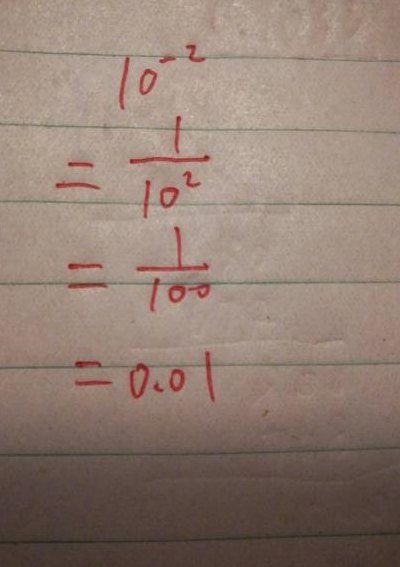 10⁻²
= 1/10²
= 1/100
= 0.01